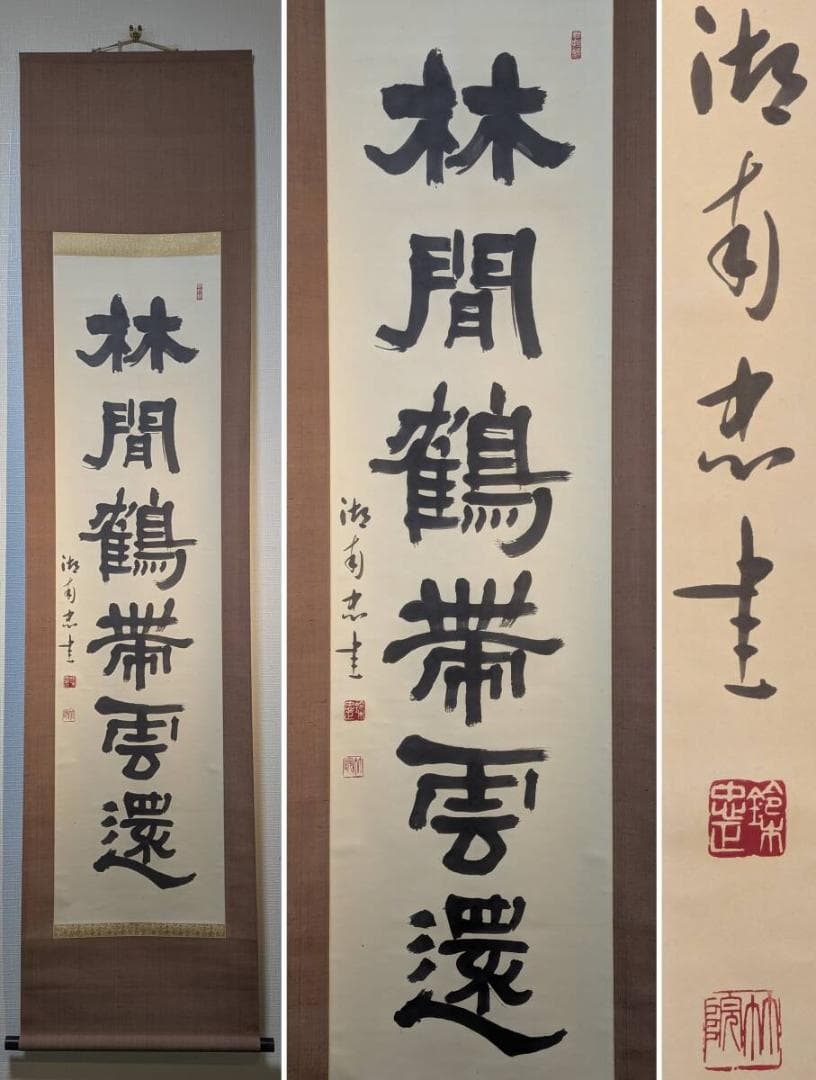 林間鶴帶雲還
湖南忠書
林間鶴帶雲還
湖南忠書
湖南忠書
鈴木忠正
竹院